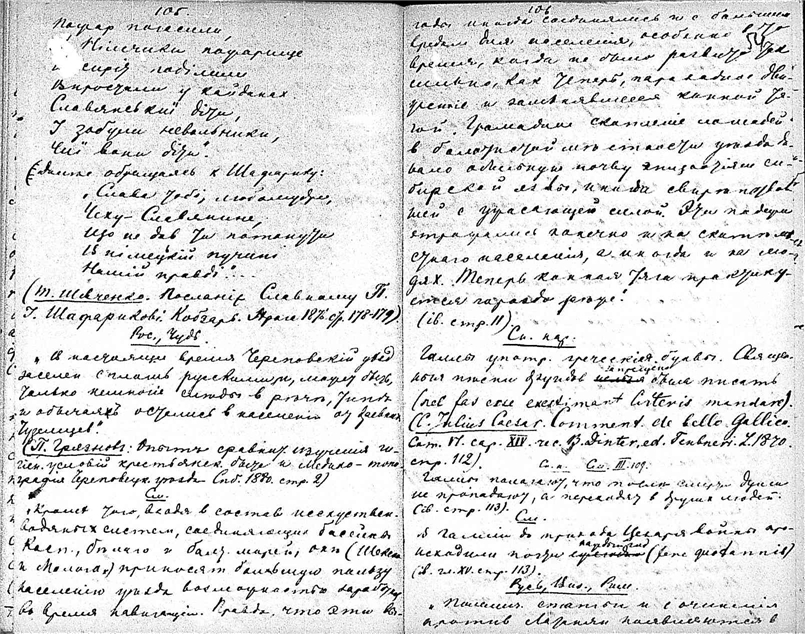 105.
Пожар погасили,
Німчики пожарище
й сирот поділили
Виростали у кайданах
Славянськиї діти,
І забули невольники,
Чиї вони діти".
Далее обращаясь к Шафарику:
"Слава тобі, любомудре,
Чеху-Славянине,
Що не дав ти потонути
В німецькій пучині
Нашій правді"...
(Т. Шевченко. Посланіе Славному П.
І. Шафарикові. Кобзарь. Прага 1876 стр. 178-179)
Рос., Чудь
"В настоящее время Череповскій уезд
заселен сплошь русскими, может быть,
только немногие следы в речи, типе
и обычаях остались в населении от
(П. Грязновъ: Опытъ сравнит. изучения ги-
гиен. условий крестьянск. быта и Медико-топо-
графия Череповецк. уезда Спб. 1880. стр. 2)
См.
"Кроме того, входя в состав искуствен.
водяных систем, соединяющих бассейны
Касп., Белого и Балт. морей, они (Шексна
и Молога) приносят большую пользу
населению уезда возможностью заработк
во время навигации. Правда, что эти
106.
годы иногда соединялись и с большим
вредом для населения, особенно в то
время, когда не было развито так
сильно, как теперь, пароходное дви-
жение и заменявшееся конной тя-
гой. Громадное скопление лошадей
в болотистой местности уезда
обильную почву эпизоотиям си-
бирской язвы, иногда
шей с ужасающей силой. Эти падежи
отражались конечно и на скоте мѣ-
стного населения, а иногда и на лю-
дях. Теперь конная тяга практику-
ется гораздо реже".
(ib. стр. 11).
См. нар.
Галлы употр. греческия буквы. Священ-
ныя песни друидов запрещено было писать
(nec fas esse existimant litteris mandare).
(C. Julius Caesar. Comment. de bello Gallico.
Com. VI. cap. XIV. rec. B. Dinter, ed. Teubneri. L. 1870.
стр. 112).
См. III. 109.
Галлы полагают, что после смерти души
не пропадают, а переходят в других людей.
(ib. стр. 113).
См.
В Галлии до прихода Цезаря войны про-
исходили почти ежегодно (fere quotannis)
(ib. гл. XV. стр. 113).
Русь, Виз., Рим.
"Полемич. статьи и сочинения
против Латинян появляются в